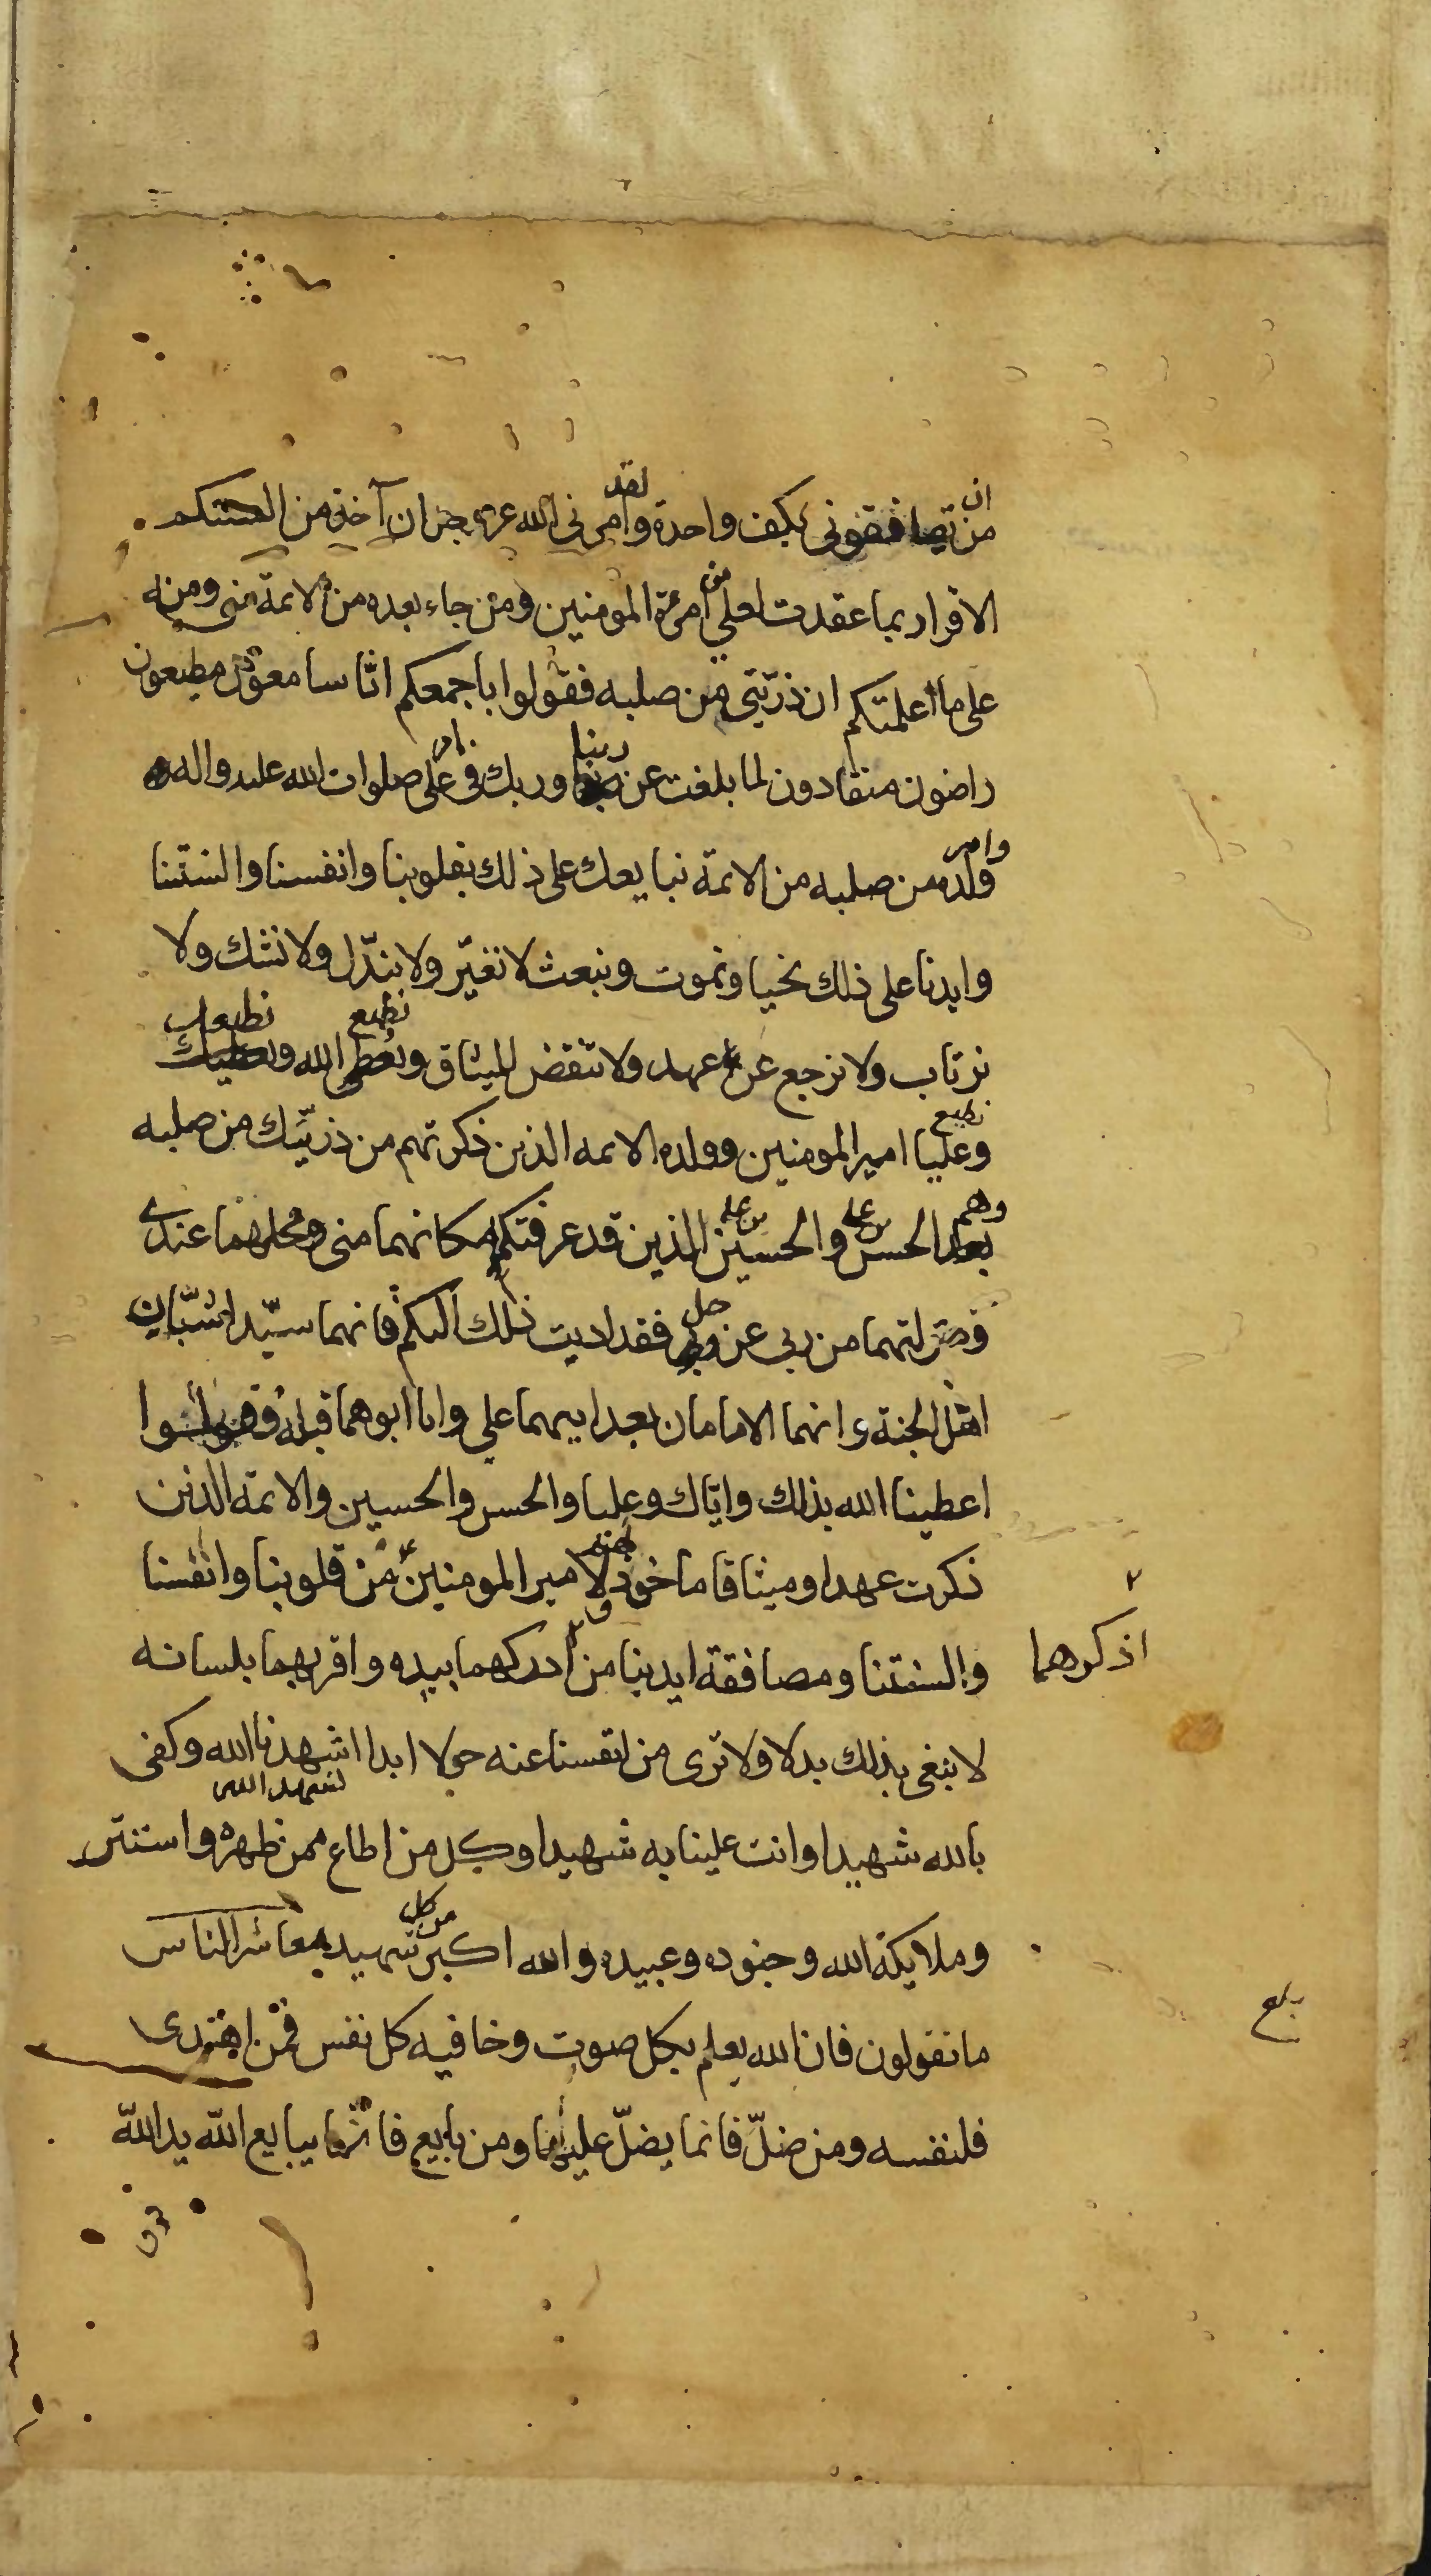 من ان تصافقونى بكف واحدة ولقد امرنى الله عز وجل ان آخذ من السنتكم
الاقرار بما عقدت لعلي من امرة المومنين ومن جاء بعده من الائمة منى ومنه
على ما اعلمتكم ان ذريتى من صلبه فقولوا باجمعكم انا سامعون مطيعون
راضون منقادون لما بلغت عن ربنا وربك فى امر على صلوات الله عليه واله
وامر ولده من صلبه من الائمة نبايعك على ذلك بقلوبنا وانفسنا والسنتنا
وايدينا على ذلك نحيا ونموت ونبعث لا نغير ولا نبدل ولا نشك ولا
نرتاب ولا نرجع عن عهد ولا ننقض الميثاق ونطيع الله ونطيعك
ونطيع عليا امير المومنين وولده الائمه الذين ذكرتهم من ذريتك من صلبه
وهم الحسن بن على والحسين بن على الذين قد عرفتكم مكانهما منى ومحلهما عندى
ومنزلتهما من ربى عز وجل فقد اديت ذلك اليكم فانهما سيدا شبان
اهل الجنة وانهما الامامان بعد ابيهما علي وانا ابوهما قبله وقولوا
اعطينا الله بذلك واياك وعليا والحسن والحسين والائمة الذين
ذكرت عهدا وميثاقا ماخوذ لامير المومنين من قلوبنا وانفسنا
والسنتنا ومصافقة ايدينا من ادركهما بيده واقر بهما بلسانه
اذكرهما
لا نبغى بذلك بدلا ولا نرى من انفسنا عنه حولا ابدا اشهدنا الله وكفى
نشهد الله
بالله شهيدا وانت علينا به شهيدا وكل من اطاع ممن ظهر واستتر
وملايكة الله وجنوده وعبيده والله اكبر من كل شهيد معاشر الناس
ما تقولون فان الله يعلم بكل صوت وخافيه كل نفس فمن اهتدى
بلغ
فلنفسه ومن ضل فانما يضل عليها ومن بايع فانما يبايع الله يد الله